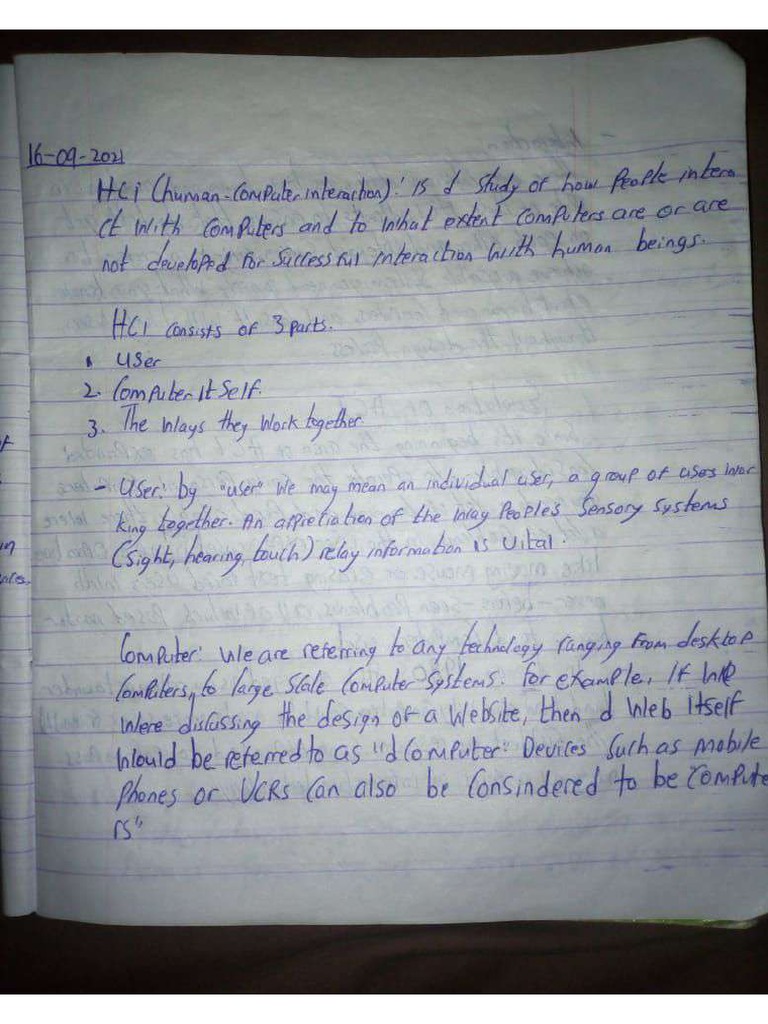 16-09-2021
HCi (human-computer interaction): is d study of how People intera
ct with computers and to what extent computers are or are
not developed for successful interaction with human beings.
HCI consists of 3 parts.
1. user
2. Computer itself.
3. The ways they work together.
- User: by "user" we may mean an individual user, a group of users wor
king together. An appretiation of the way people's sensory systems
(sight, hearing, touch) relay information is vital.
Computer: we are referring to any technology ranging from desktop
computers, to large scale computer systems. for example, if we
were discussing the design of a website, then d web itself
would be referred to as "d computer." Devices such as mobile
phones or VCRs can also be consindered to be compute
rs"